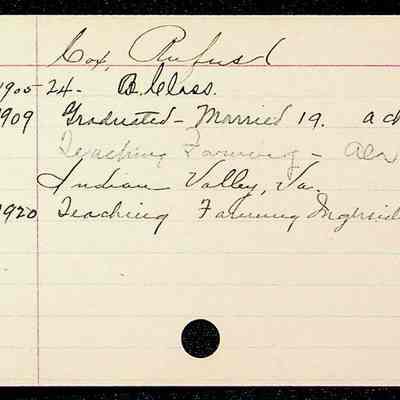 Cox, Rufus
1905-24- B. Class.
1909 Graduated - Married 19. a ch
Teaching Farming - Also
Indian Valley, Va.
1920 Teaching Farming Ingleside